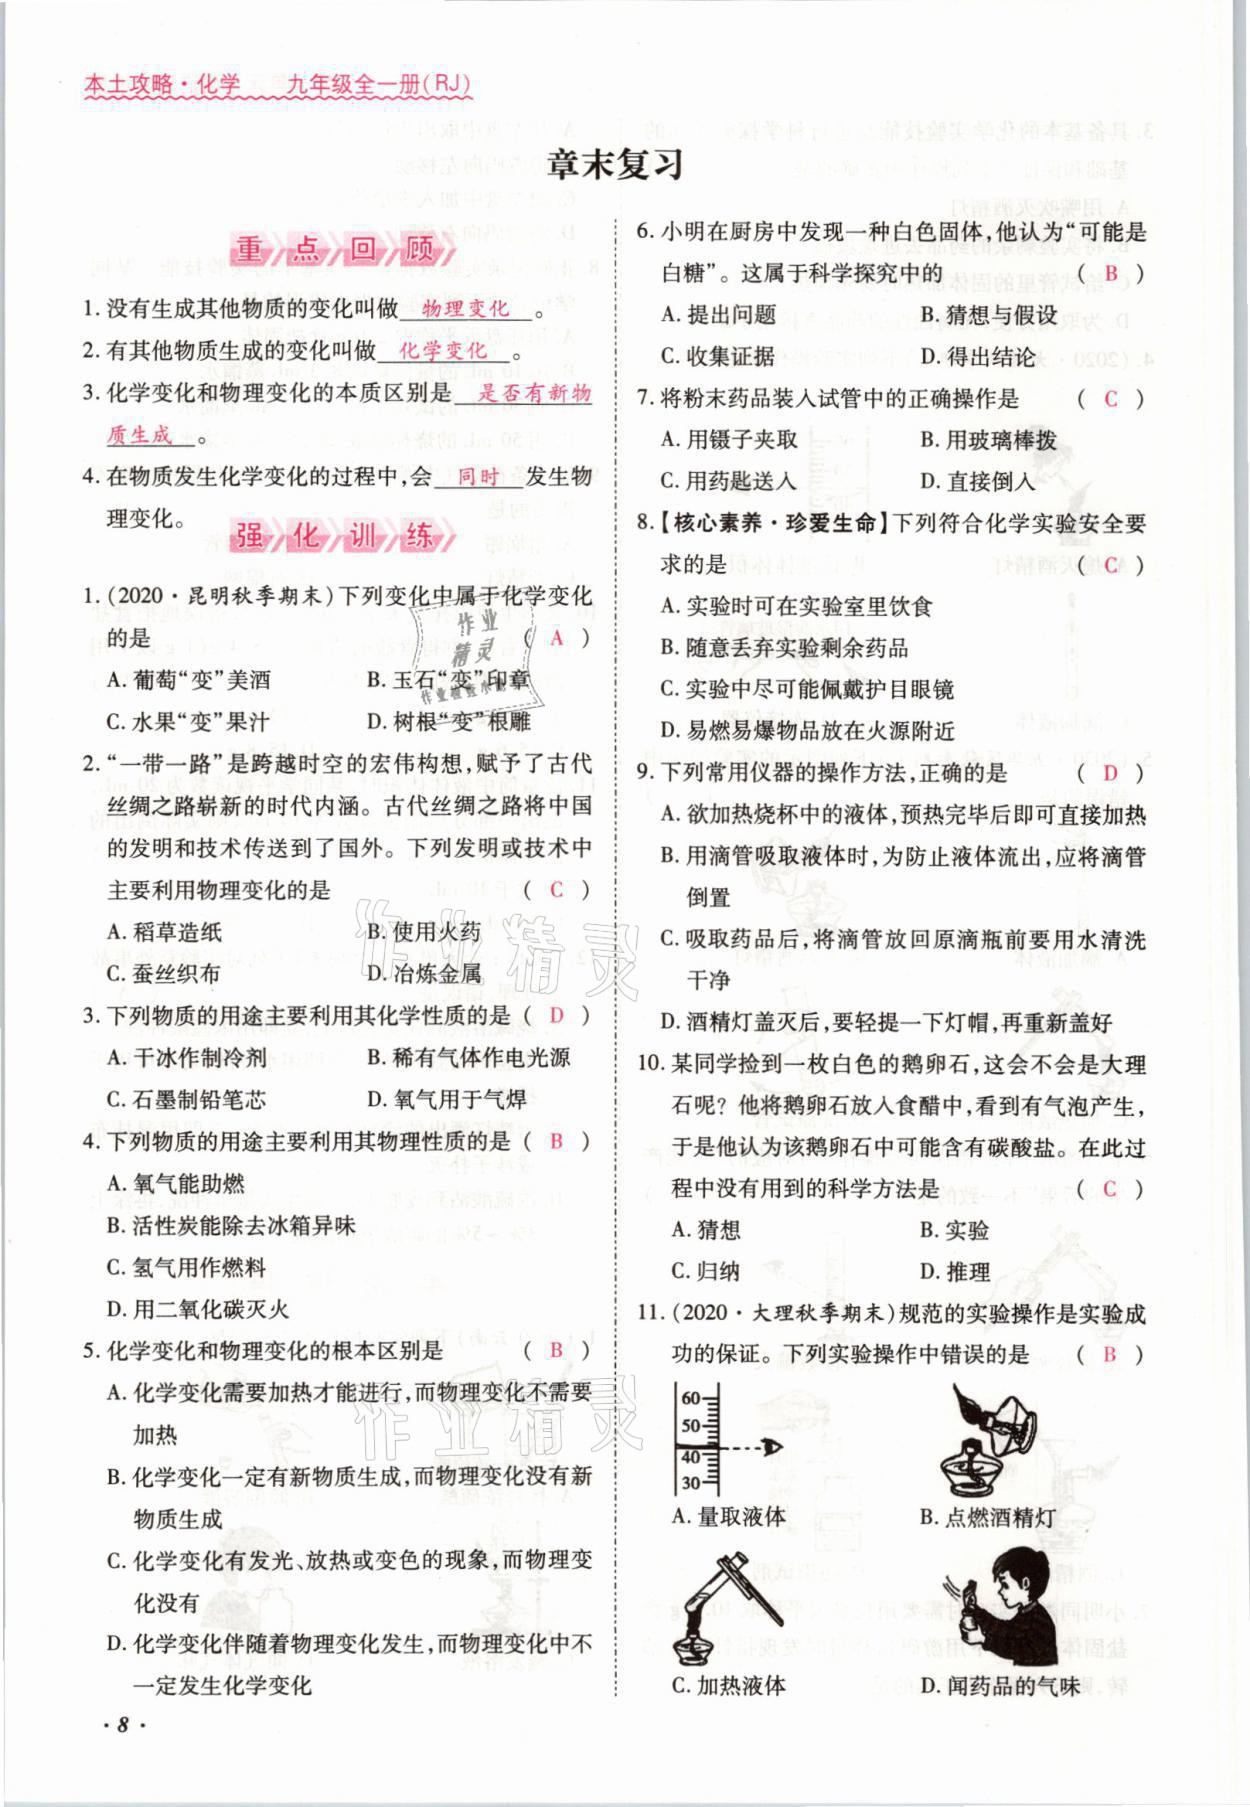 本土攻略·化学 九年级全一册(RJ)
章末复习
重点回顾
1. 没有生成其他物质的变化叫做 物理变化 。
2. 有其他物质生成的变化叫做 化学变化 。
3. 化学变化和物理变化的本质区别是 是否有新物
质生成 。
4. 在物质发生化学变化的过程中,会 同时 发生物
理变化。
强化训练
1. (2020·昆明秋季期末)下列变化中属于化学变化
的是 ( A )
A. 葡萄“变”美酒 B. 玉石“变”印章
C. 水果“变”果汁 D. 树根“变”根雕
2. “一带一路”是跨越时空的宏伟构想,赋予了古代
丝绸之路崭新的时代内涵。古代丝绸之路将中国
的发明和技术传送到了国外。下列发明或技术中
主要利用物理变化的是 ( C )
A. 稻草造纸 B. 使用火药
C. 蚕丝织布 D. 冶炼金属
3. 下列物质的用途主要利用其化学性质的是 ( D )
A. 干冰作制冷剂 B. 稀有气体作电光源
C. 石墨制铅笔芯 D. 氧气用于气焊
4. 下列物质的用途主要利用其物理性质的是 ( B )
A. 氧气能助燃
B. 活性炭能除去冰箱异味
C. 氢气用作燃料
D. 用二氧化碳灭火
5. 化学变化和物理变化的根本区别是 ( B )
A. 化学变化需要加热才能进行,而物理变化不需要
加热
B. 化学变化一定有新物质生成,而物理变化没有新
物质生成
C. 化学变化有发光、放热或变色的现象,而物理变
化没有
D. 化学变化伴随着物理变化发生,而物理变化中不
一定发生化学变化
·8·
6. 小明在厨房中发现一种白色固体,他认为“可能是
白糖”。这属于科学探究中的 ( B )
A. 提出问题 B. 猜想与假设
C. 收集证据 D. 得出结论
7. 将粉末药品装入试管中的正确操作是 ( C )
A. 用镊子夹取 B. 用玻璃棒拨
C. 用药匙送入 D. 直接倒入
8. 【核心素养·珍爱生命】下列符合化学实验安全要
求的是 ( C )
A. 实验时可在实验室里饮食
B. 随意丢弃实验剩余药品
C. 实验中尽可能佩戴护目眼镜
D. 易燃易爆物品放在火源附近
9. 下列常用仪器的操作方法,正确的是 ( D )
A. 欲加热烧杯中的液体,预热完毕后即可直接加热
B. 用滴管吸取液体时,为防止液体流出,应将滴管
倒置
C. 吸取药品后,将滴管放回原滴瓶前要用水清洗
干净
D. 酒精灯盖灭后,要轻提一下灯帽,再重新盖好
10. 某同学捡到一枚白色的鹅卵石,这会不会是大理
石呢?他将鹅卵石放入食醋中,看到有气泡产生,
于是他认为该鹅卵石中可能含有碳酸盐。在此过
程中没有用到的科学方法是 ( C )
A. 猜想 B. 实验
C. 归纳 D. 推理
11. (2020·大理秋季期末)规范的实验操作是实验成
功的保证。下列实验操作中错误的是 ( B )
60
50
40
30
A. 量取液体 B. 点燃酒精灯
C. 加热液体 D. 闻药品的气味
作业精灵
作业精灵
作业
精灵